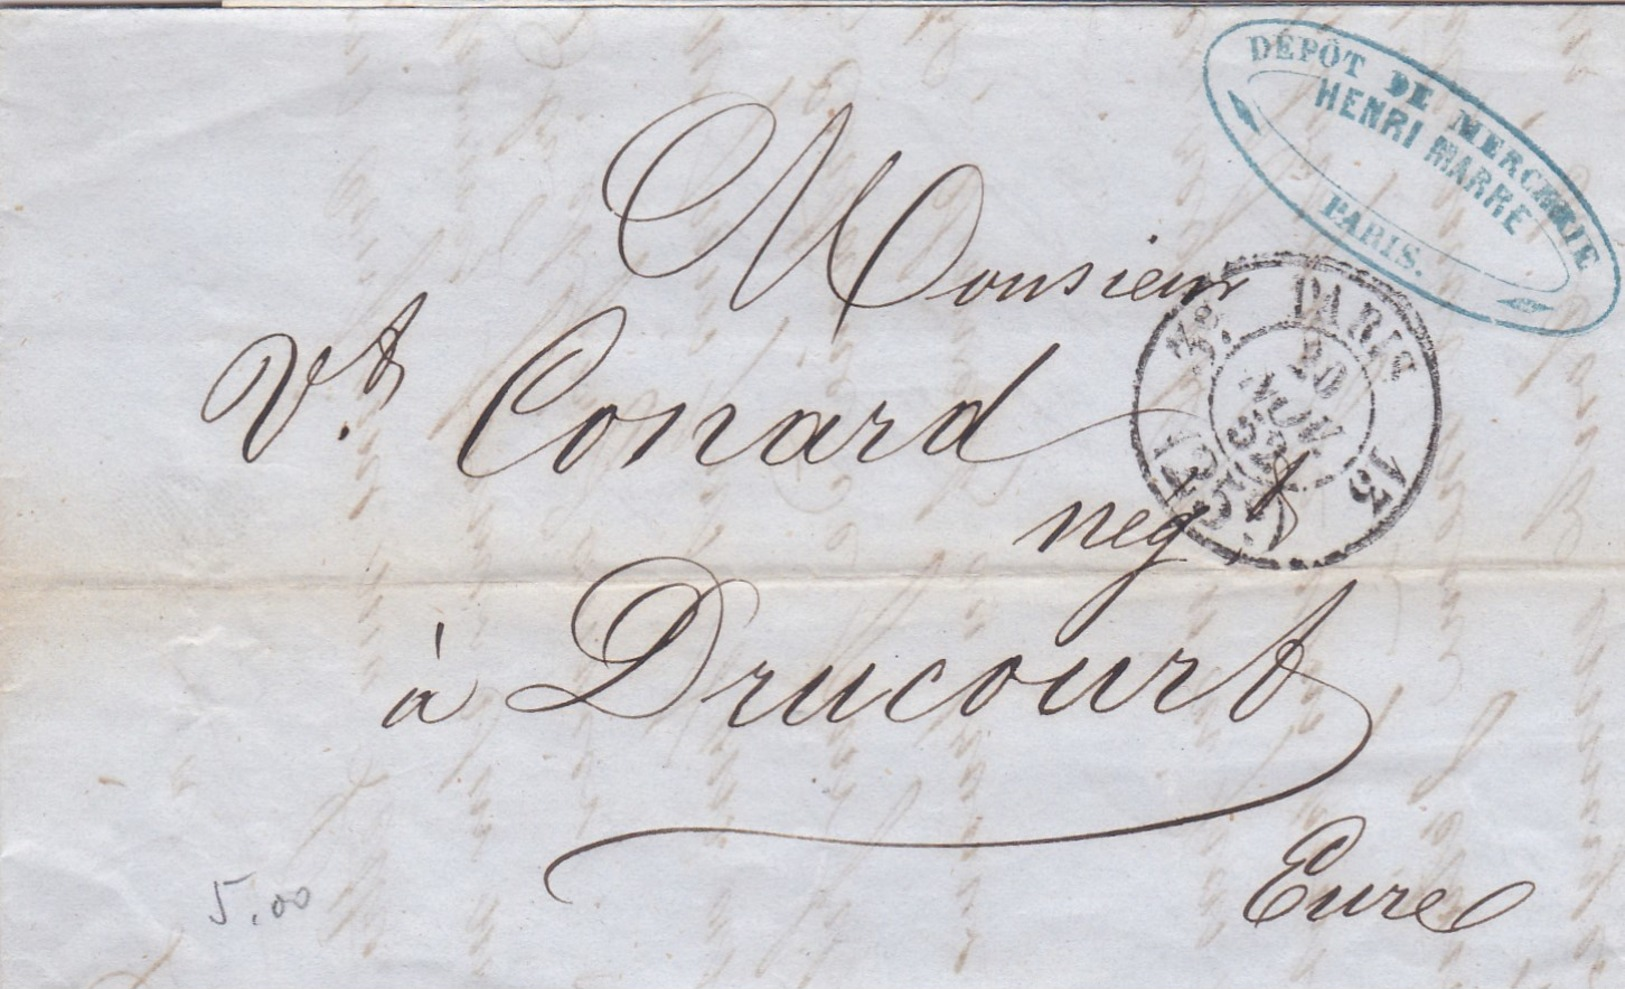 DÉPÔT DE MERCERIE
HENRI MARRE
PARIS.
Monsieur
Vt. Conard
negt
à Drucourt
Eure
PARIS
NOV
52
5.00